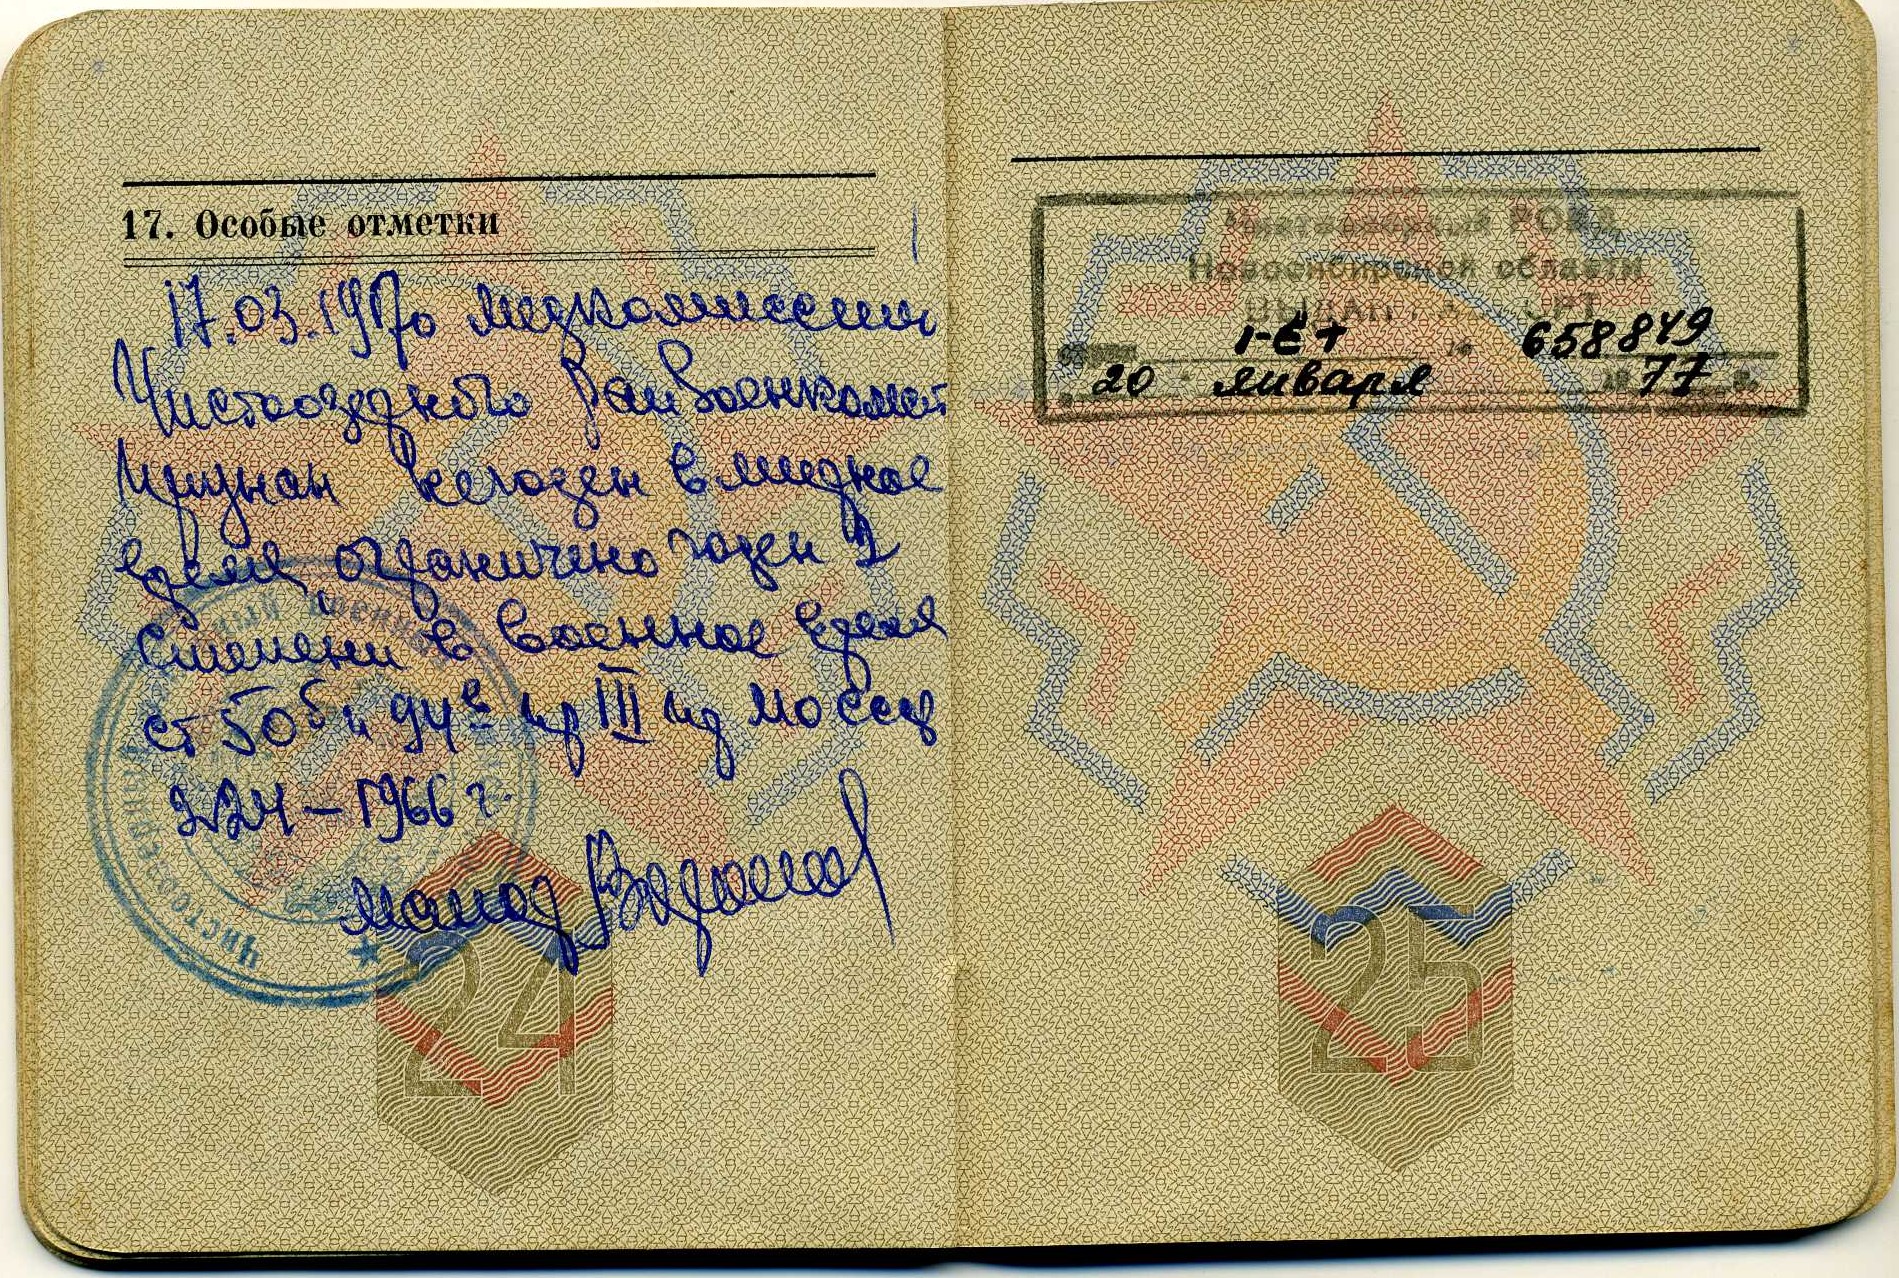 17. Особые отметки
17.03.1970 медкомиссией
Чистоозерного Райвоенкомат
признан негоден в мирное
время ограничено годен 2
степени в военное время
ст 50б и 94в пр III пр МО СССР
-1966 г.
майор
24
Новосибирской области
ВЫДАН ПАСПОРТ
серии I-ЕТ № 658849
20 января 1977 г.
25